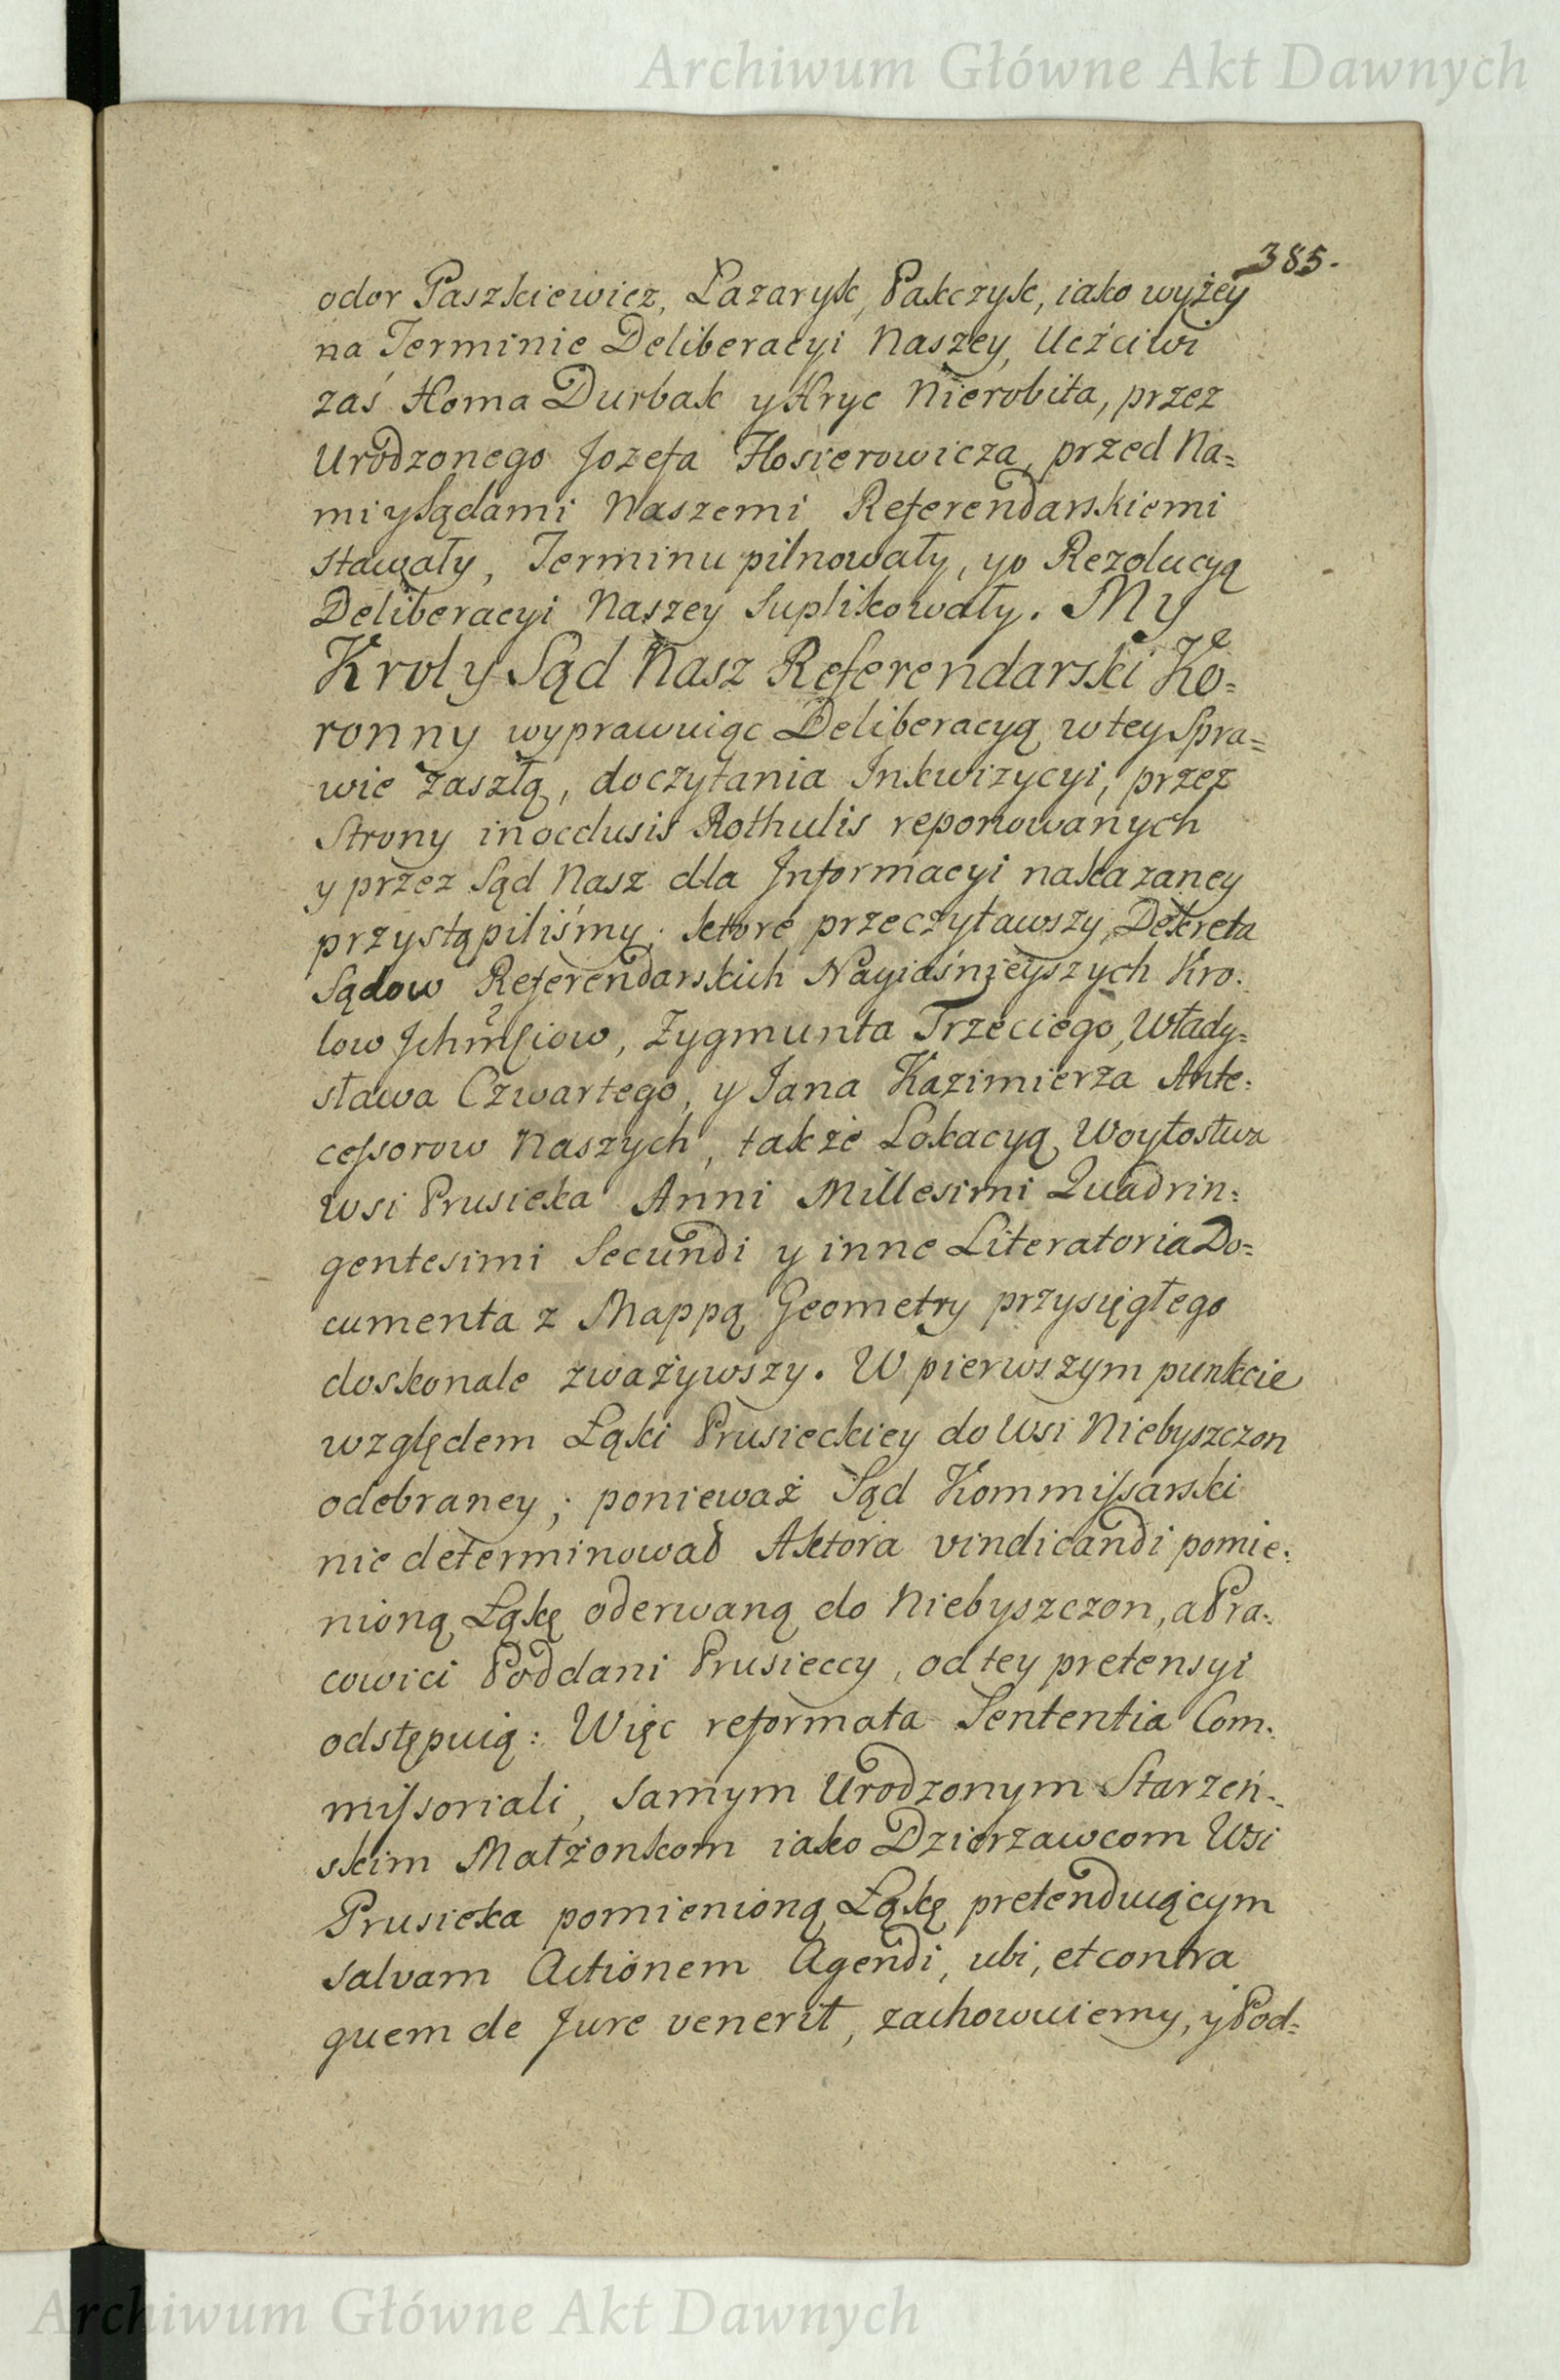 Archiwum Główne Akt Dawnych
385.
odor Paszkiewicz, Łazaryk, Pakczyk, iako wyżey
na Terminie Deliberacyi Naszey, Ucźciwi
zaś Homa Durbak y Hryc Nierobiła, przez
Urodzonego Jozefa Hosierowicza, przed Na=
mi y Sądami Naszemi Referendarskiemi
stawały, Terminu pilnowały, y o Rezolucyą
Deliberacyi Naszey Suplikowały. My
Krol y Sąd Nasz Referendarski Ko=
ronny wyprawuiąc Deliberacyą w tey Spra=
wie zaszłą, do czytania Inkwizycyi, przez
Strony in occlusis Rothulis reponowanych
y przez Sąd Nasz dla Informacyi nakazaney
przystąpiliśmy; ktore przeczytawszy, Dekreta
Sądow Referendarskich Nayiaśnieyszych Kro=
low Jchmſciow, Zygmunta Trzeciego, Włady=
sława Czwartego, y Jana Kazimierza Ante=
ceſsorow Naszych, także Lokacyą Woytostwa
Wsi Prusieka Anni Millesimi Quadrin=
gentesimi Secundi y inne Literatoria Do=
cumenta z Mappą Geometry przysięgłego
doskonale zważywszy. W pierwszym punkcie
względem Łąki Prusieckiey do Wsi Niebyszczon
odebraney; ponieważ Sąd Kommiſsarski
nie determinował Aktora vindicandi pomie=
nioną Łąkę oderwaną do Niebyszczon, a Pra=
cowici Poddani Prusieccy, od tey pretensyi
odstępuią: Więc reformata Sententia Com=
miſsoriali, samym Urodzonym Starzeń=
skim Małżonkom iako Dzierzawcom Wsi
Prusieka pomienioną Łąkę pretenduiącym
salvam Actionem Agendi, ubi, et contra
quem de Jure venerit, zachowuiemy, y Pod=
Archiwum Główne Akt Dawnych